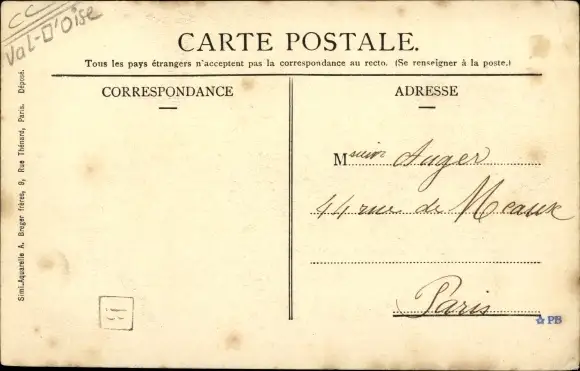 CC
Val-D'Oise
CARTE POSTALE.
Tous les pays étrangers n'acceptent pas la correspondance au recto. (Se renseigner à la poste.)
CORRESPONDANCE
ADRESSE
Msieur Auger
44 rue de Meaux
Paris
Simi-Aquarelle A. Breger frères, 9, Rue Thénard, Paris. Déposé.
B
PB